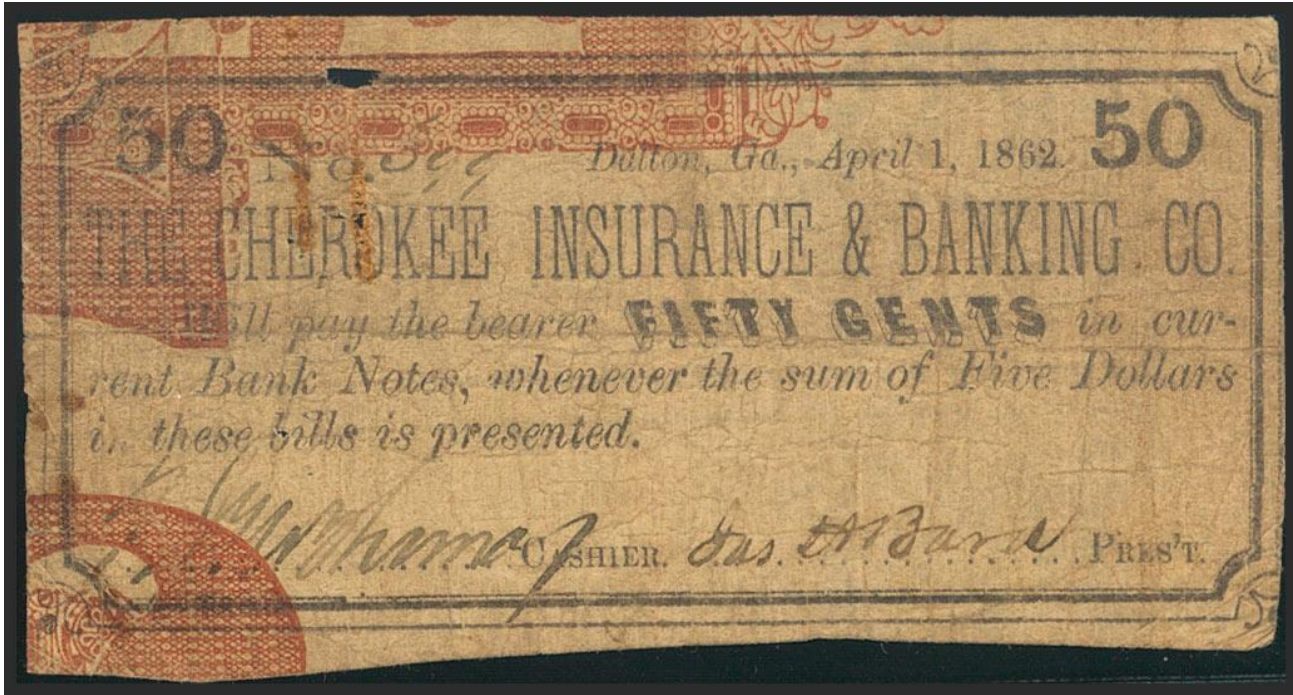 50 No. 50
Dalton, Ga., April 1, 1862.
THE CHEROKEE INSURANCE & BANKING CO.
Will pay the bearer FIFTY CENTS in cur-
rent Bank Notes, whenever the sum of Five Dollars
in these bills is presented.
CASHIER. Jas. PRES'T.